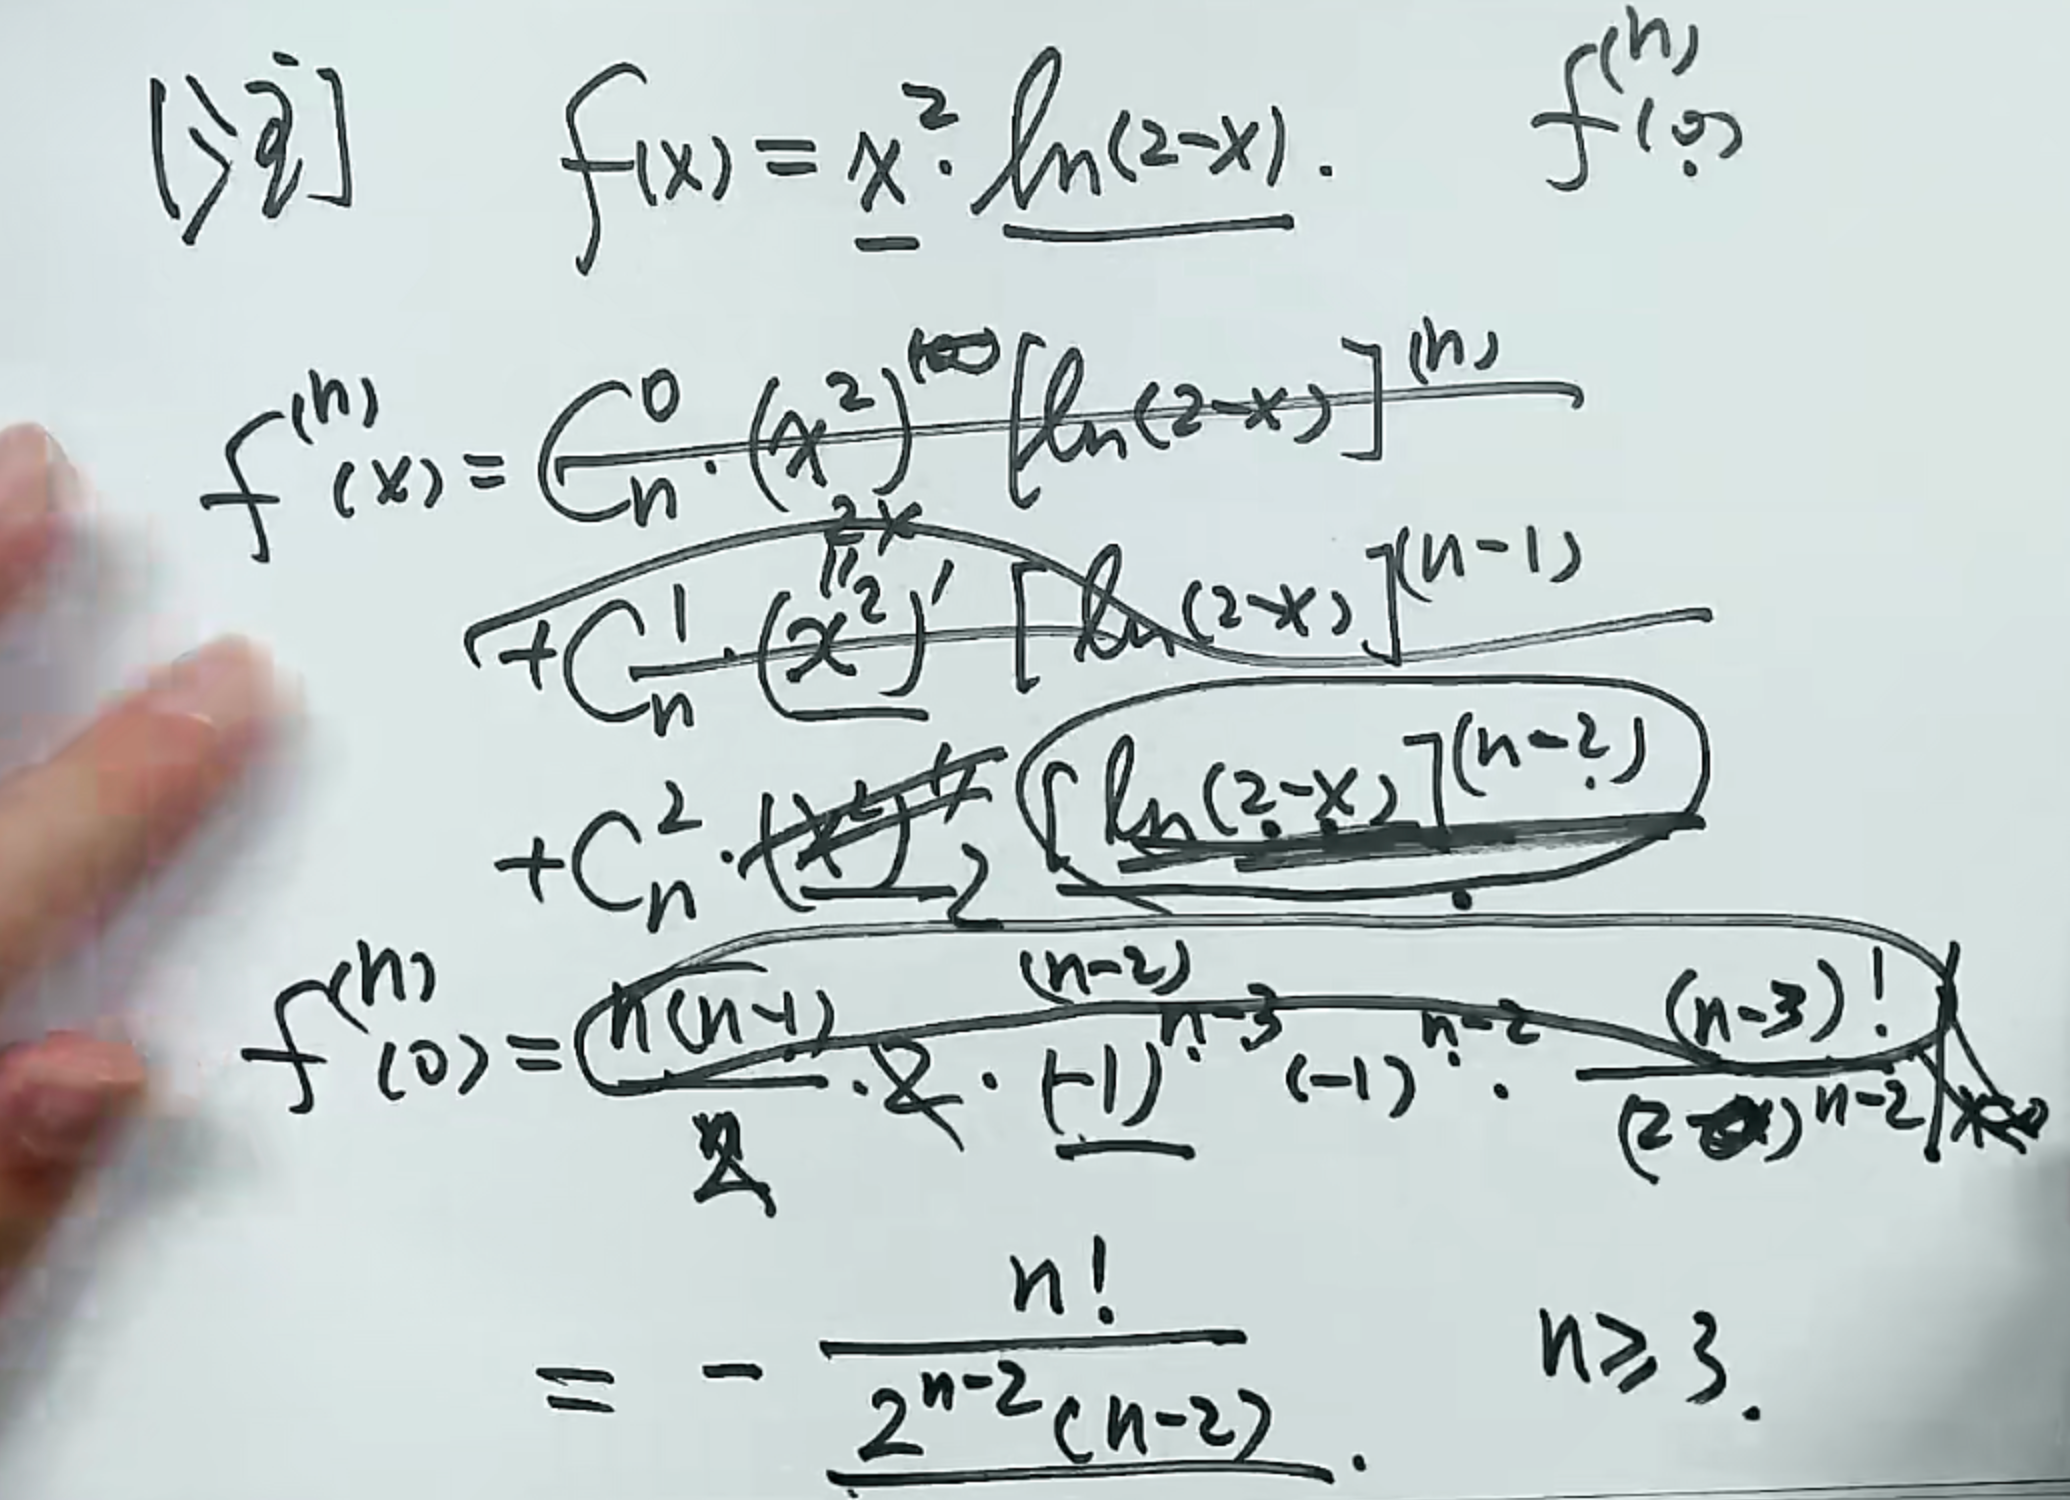 [例] f(x) = x²·ln(2-x). f⁽ⁿ⁾(0)
f⁽ⁿ⁾(x) = Cₙ⁰·(x²) [ln(2-x)]⁽ⁿ⁾
2x
"
+Cₙ¹·(x²)′ [ln(2-x)]⁽ⁿ⁻¹⁾
+Cₙ²·(x²)″ 2 [ln(2-x)]⁽ⁿ⁻²⁾
f⁽ⁿ⁾(0) = n(n-1)/2 · 2 · (-1)ⁿ⁻³ (-1)ⁿ⁻² · (n-3)!/(2-0)ⁿ⁻² | x=0
(n-2)
= - n!/2ⁿ⁻²(n-2). n≥3.